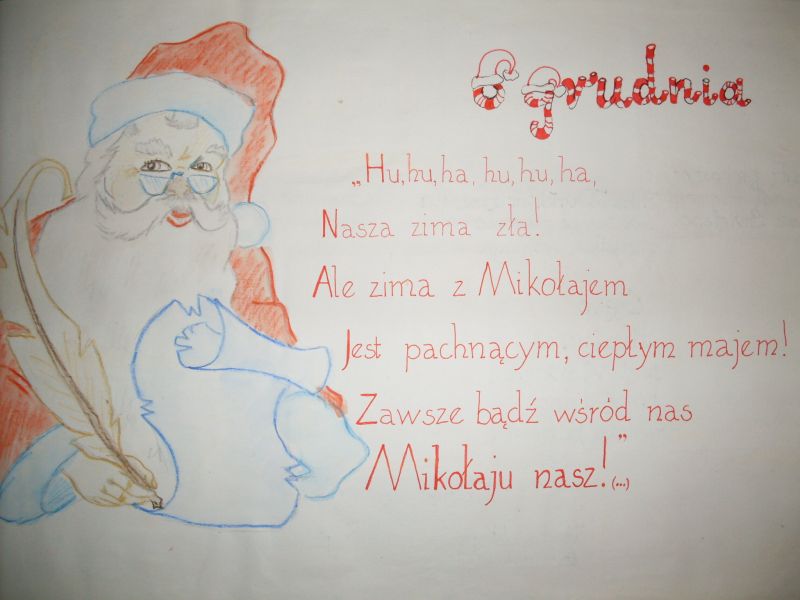 6 grudnia
„Hu, hu, ha, hu, hu, ha,
Nasza zima zła!
Ale zima z Mikołajem
Jest pachnącym, ciepłym majem!
Zawsze bądź wśród nas
Mikołaju nasz!” (...)